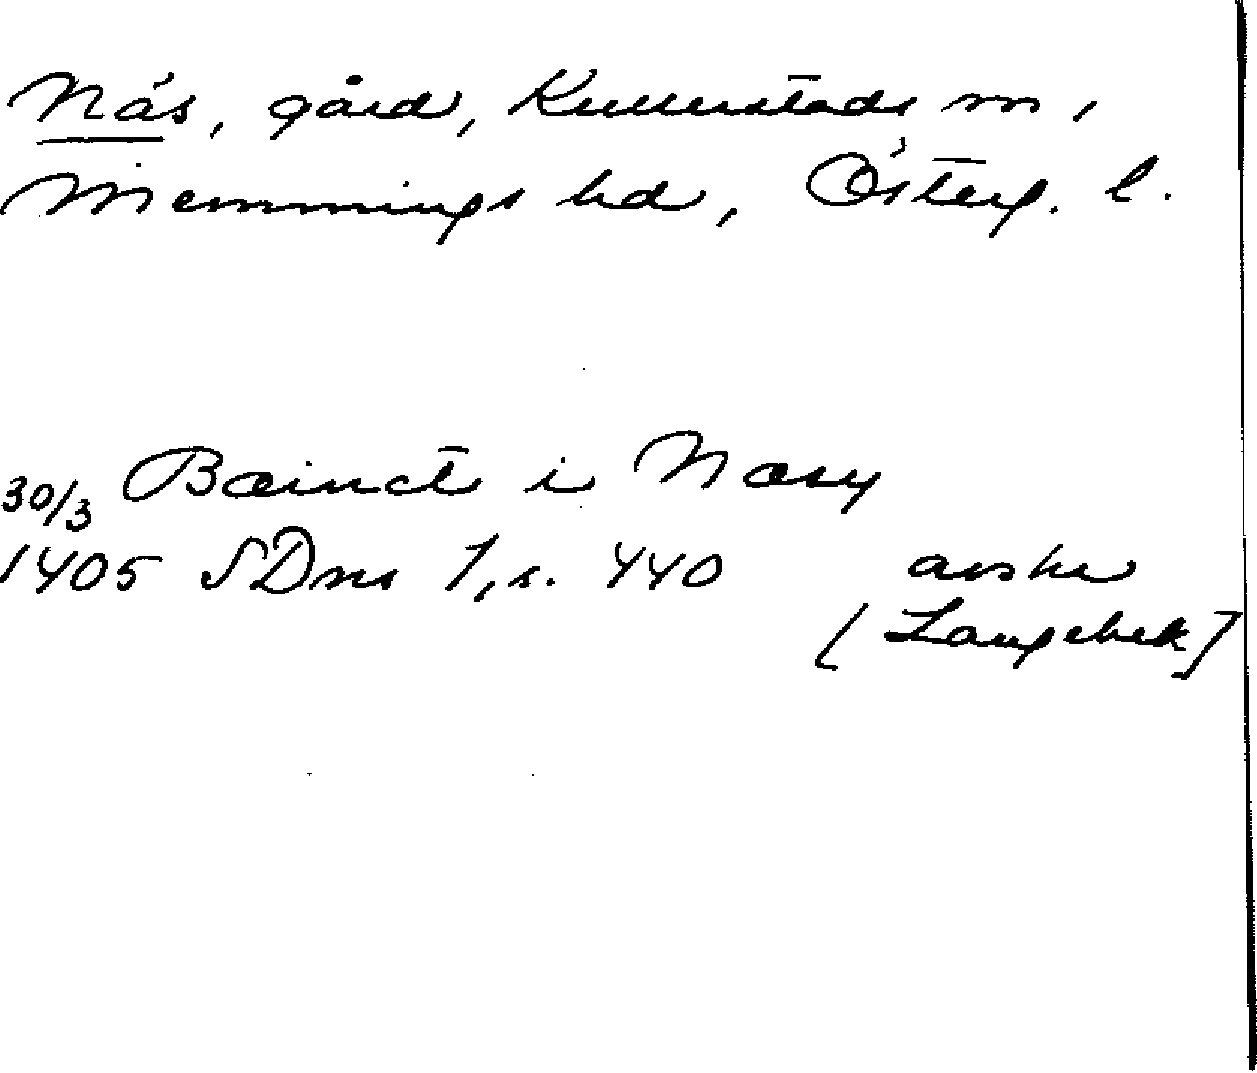 Näs, gård, Kullerstads sn,
Memmings hd, Österg. l.
30/3 Bæinct i Næsy
1405 SDns 1, s. 440 avskr
[Langebek]